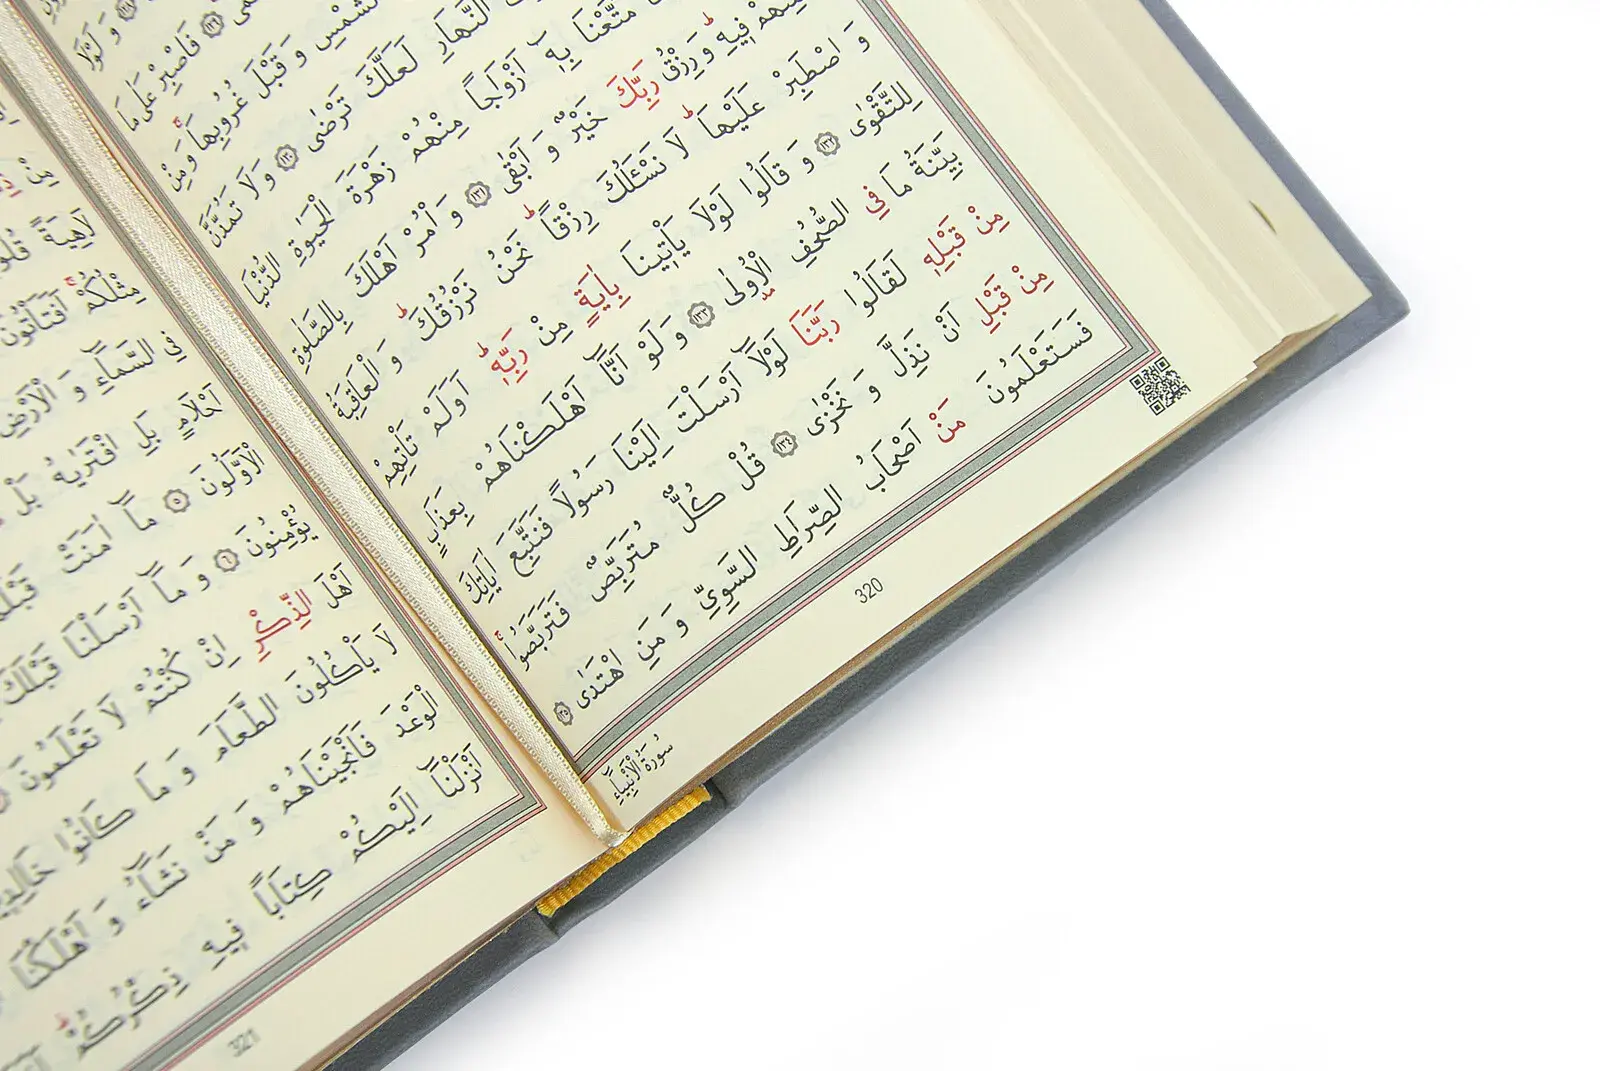 وَ لَوْلَا
فَاصْبِرْ عَلٰى مَا
الشَّمْسِ وَ قَبْلَ غُرُوبِهَا وَ مِنْ
النَّهَارِ لَعَلَّكَ تَرْضٰى ١٣٠ وَ لَا تَمُدَّنَّ
مَتَّعْنَا بِهٖٓ اَزْوَاجًا مِنْهُمْ زَهْرَةَ الْحَيٰوةِ الدُّنْيَا
فِيهِ وَ رِزْقُ رَبِّكَ خَيْرٌ وَ اَبْقٰى ١٣١ وَ أْمُرْ اَهْلَكَ بِالصَّلٰوةِ
وَ اصْطَبِرْ عَلَيْهَا لَا نَسْـَٔلُكَ رِزْقًا نَحْنُ نَرْزُقُكَ وَ الْعَاقِبَةُ
لِلتَّقْوٰى ١٣٢ وَ قَالُوا لَوْلَا يَأْتِينَا بِاٰيَةٍ مِنْ رَبِّهٖ اَوَلَمْ تَأْتِهِمْ
بَيِّنَةُ مَا فِي الصُّحُفِ الْاُولٰى ١٣٣ وَ لَوْ اَنَّٓا اَهْلَكْنَاهُمْ بِعَذَابٍ
مِنْ قَبْلِهٖ لَقَالُوا رَبَّنَا لَوْلَٓا اَرْسَلْتَ اِلَيْنَا رَسُولًا فَنَتَّبِعَ اٰيَاتِكَ
مِنْ قَبْلِ اَنْ نَذِلَّ وَ نَخْزٰى ١٣٤ قُلْ كُلٌّ مُتَرَبِّصٌ فَتَرَبَّصُوا
فَسَتَعْلَمُونَ مَنْ اَصْحَابُ الصِّرَاطِ السَّوِيِّ وَ مَنِ اهْتَدٰى ١٣٥
320
سُورَةُ الْاَنْبِيَٓاءِ
مِنْ
لَاهِيَةً
مِثْلُكُمْ اَفَتَأْتُونَ
فِي السَّمَٓاءِ وَ الْاَرْضِ
اَحْلَامٍ بَلِ افْتَرٰيهُ بَلْ
الْاَوَّلُونَ ٥ مَٓا اٰمَنَتْ
يُؤْمِنُونَ ٦ وَ مَٓا اَرْسَلْنَا قَبْلَكَ
اَهْلَ الذِّكْرِ اِنْ كُنْتُمْ لَا تَعْلَمُونَ
لَا يَأْكُلُونَ الطَّعَامَ وَ مَا كَانُوا
الْوَعْدَ فَاَنْجَيْنَاهُمْ وَ مَنْ نَشَٓاءُ وَ اَهْلَكْنَا
اَنْزَلْنَٓا اِلَيْكُمْ كِتَابًا فِيهِ ذِكْرُكُمْ
321